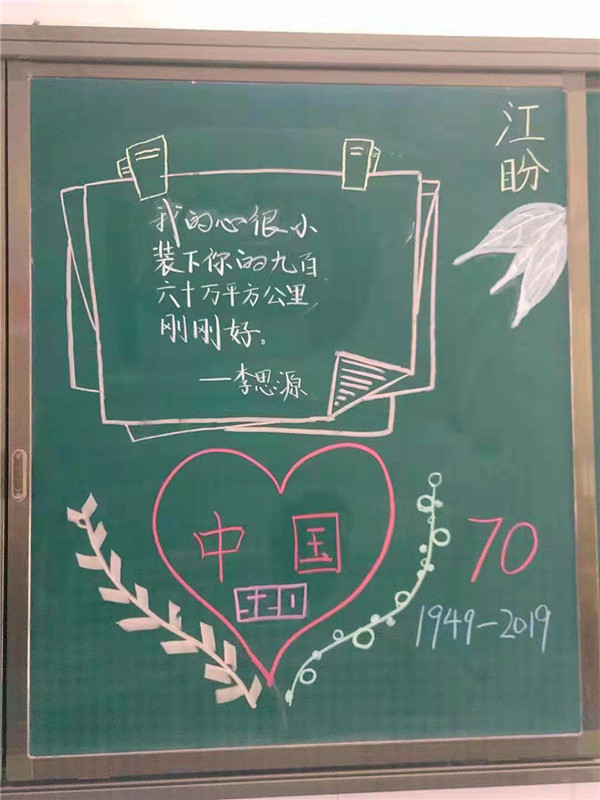 江盼
我的心很小
装下你的九百
六十万平方公里
刚刚好。
—李思源
中国
70
1949-2019